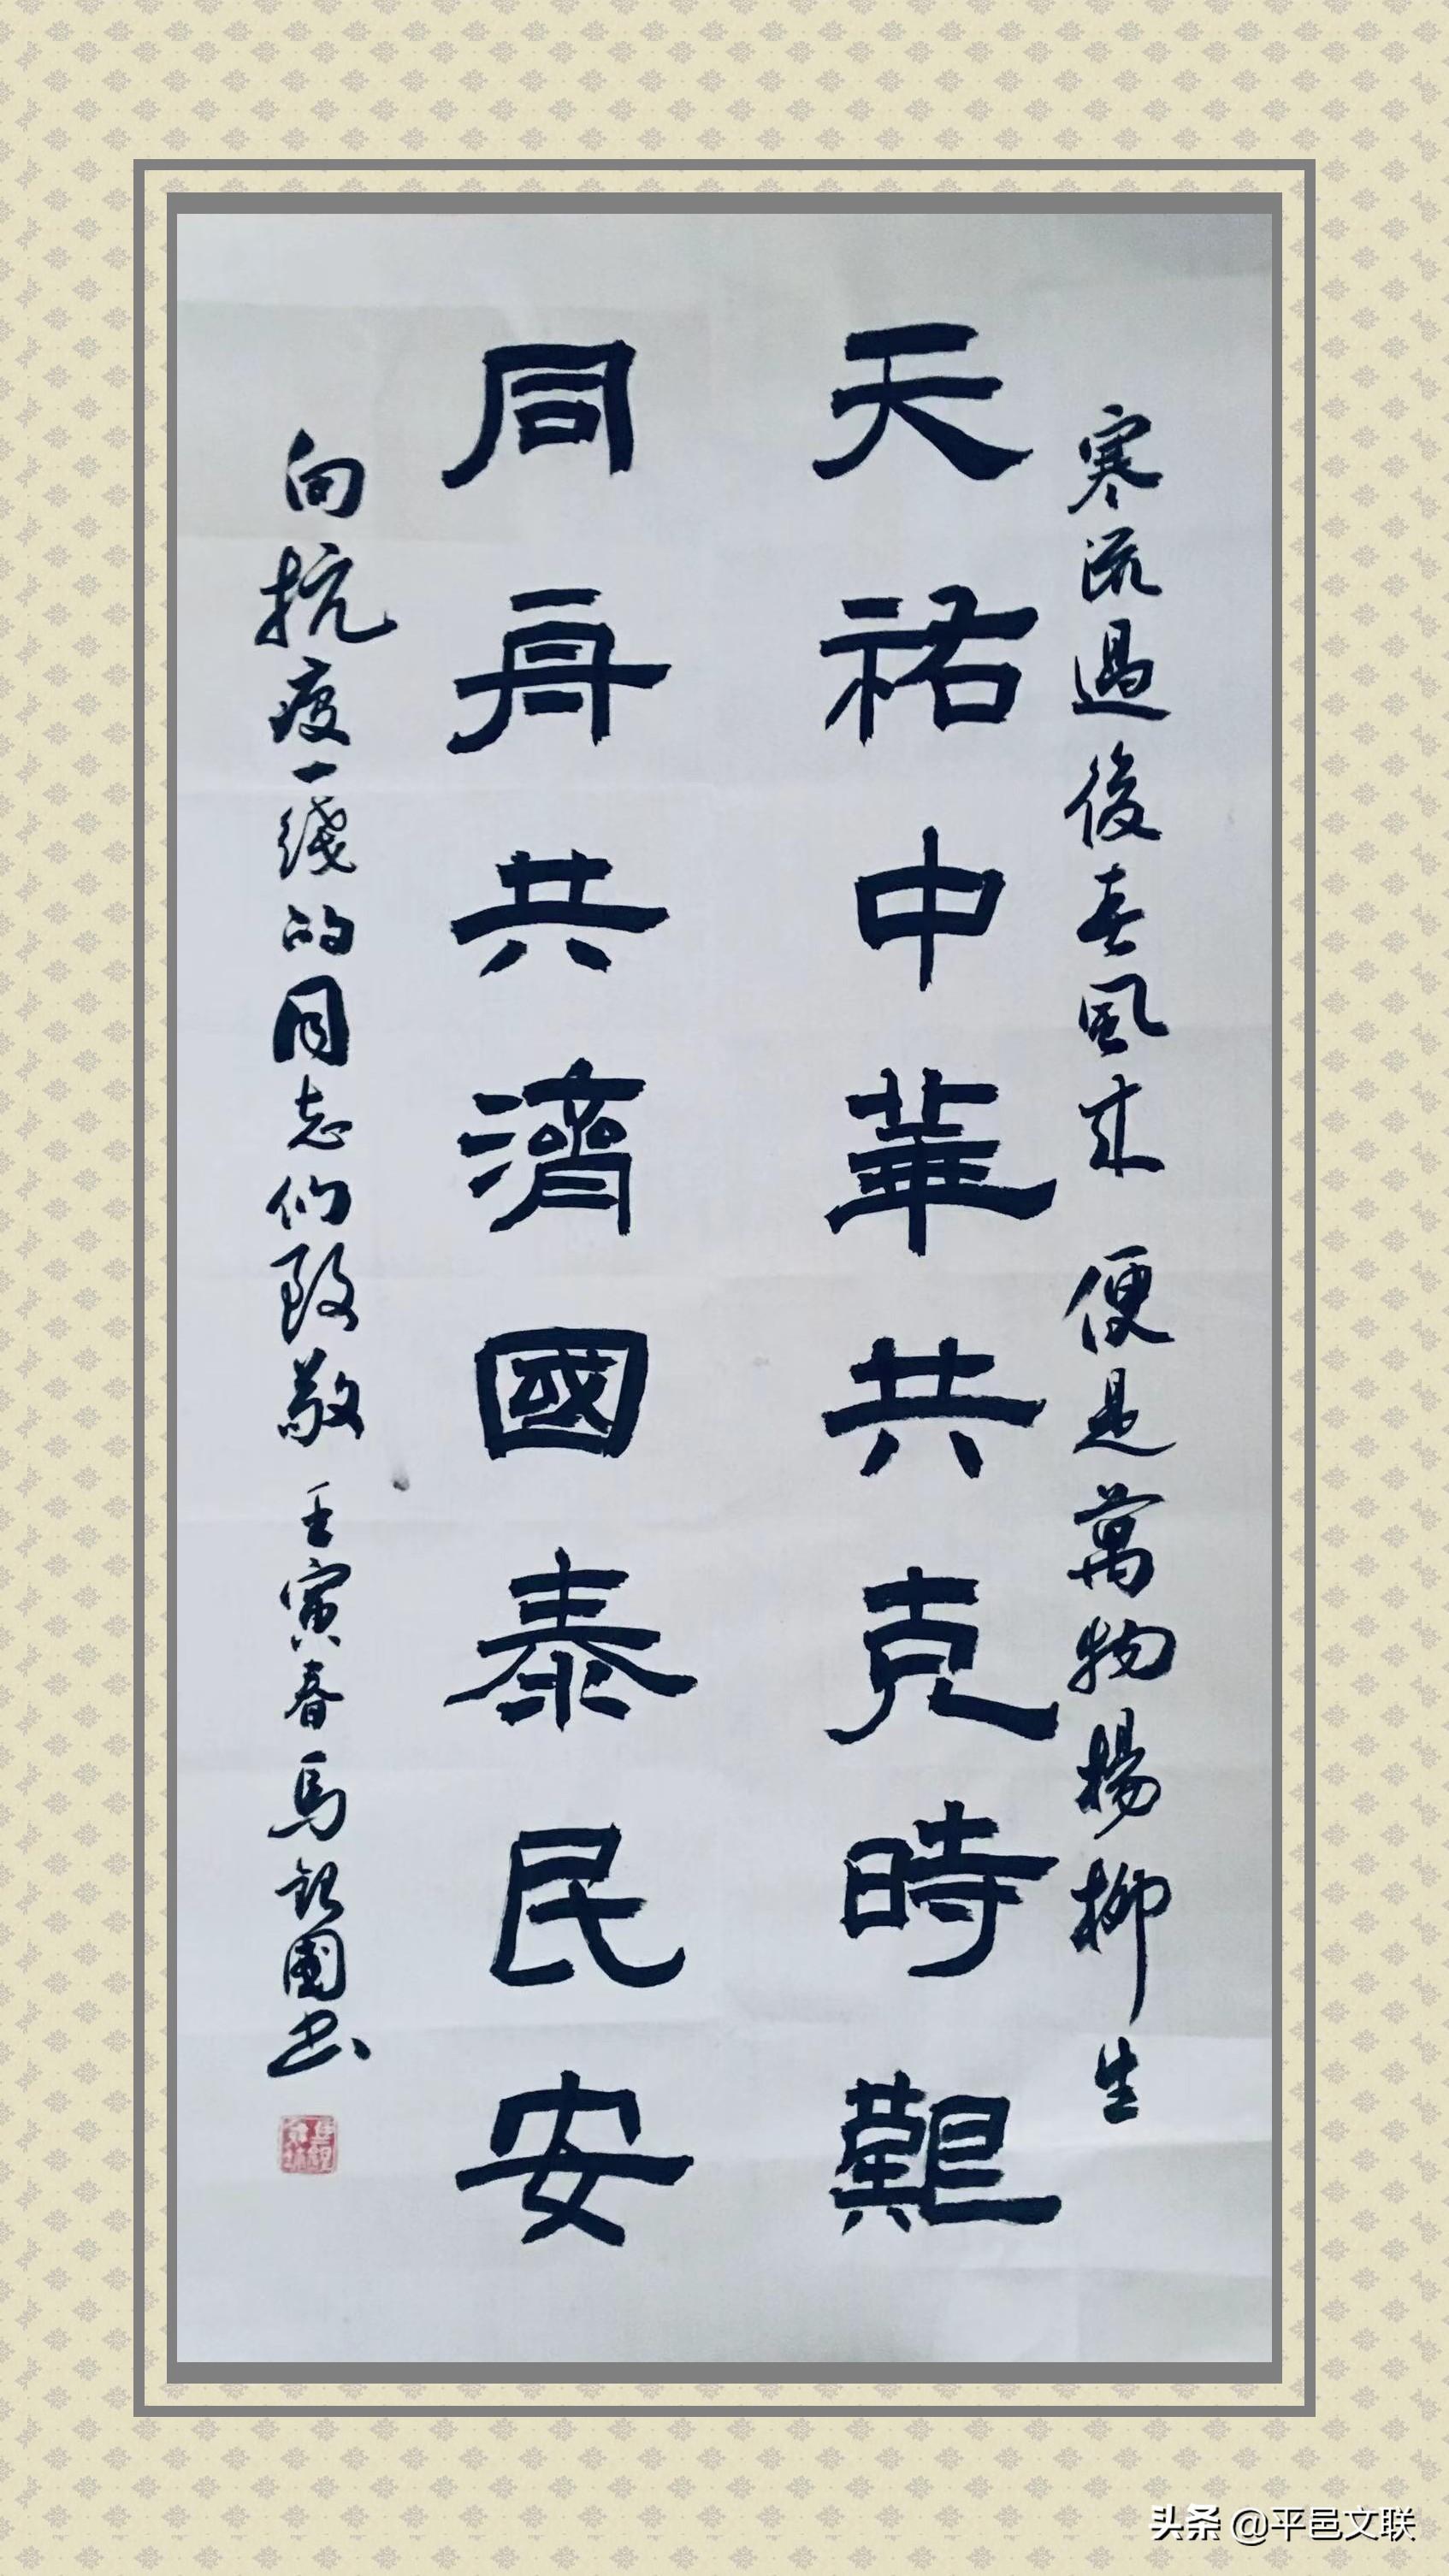 寒流過後春風來 便是萬物楊柳生
天祐中華共克時艱
同舟共濟國泰民安
向抗疫一线的同志们致敬 壬寅春馬銀國书
头条 @平邑文联